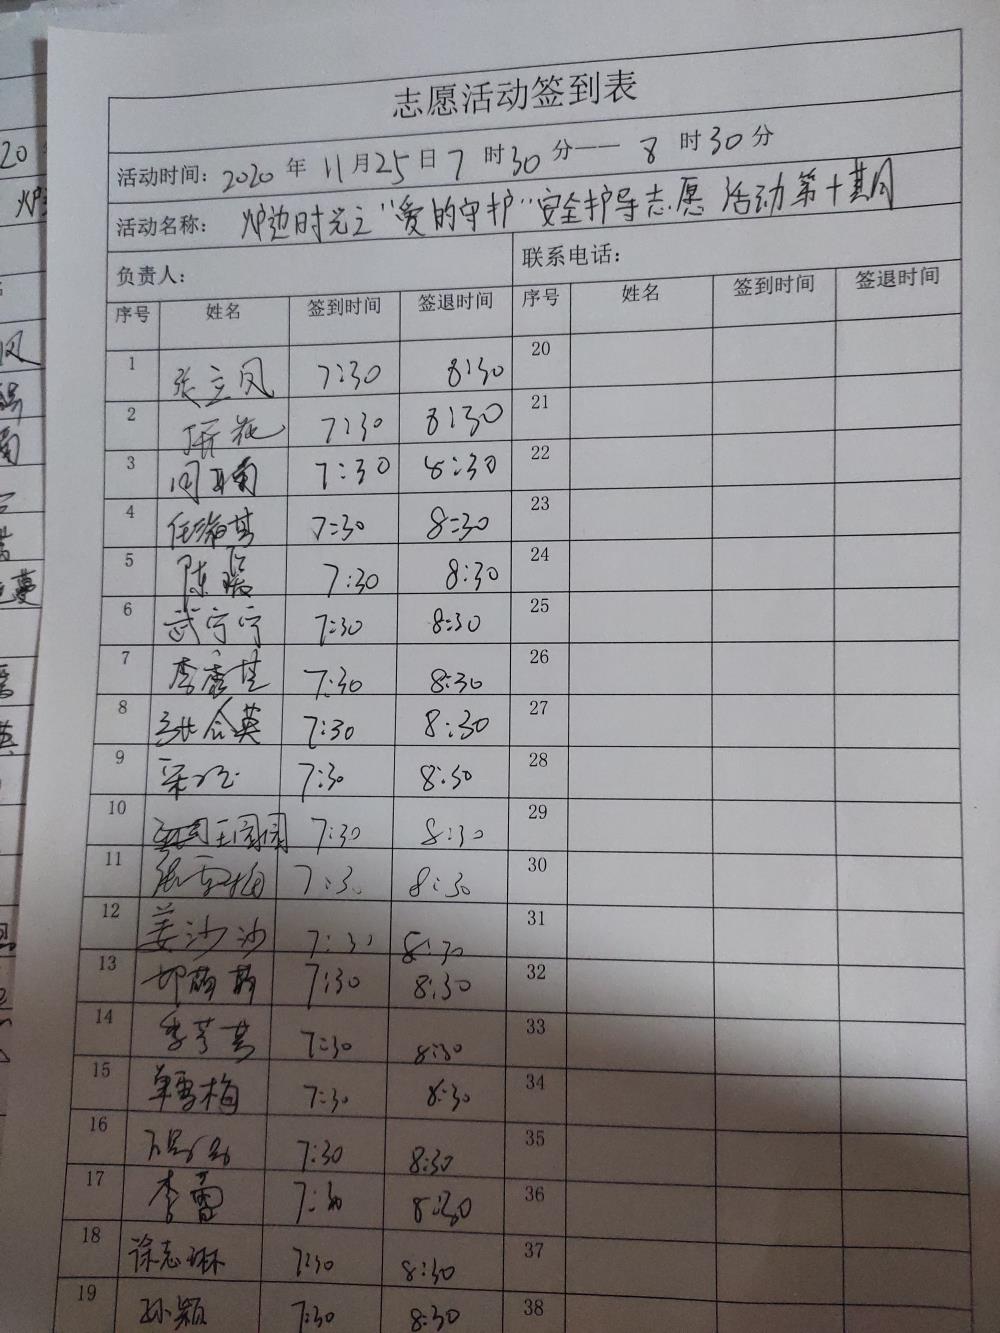 志愿活动签到表
活动时间：2020 年 11 月 25 日 7 时 30 分—— 8 时 30 分
活动名称： 炉边时光之"爱的守护"安全护导志愿 活动第十期
负责人： 联系电话：
序号 姓名 签到时间 签退时间 序号 姓名 签到时间 签退时间
1 张立凤 7:30 8:30 20
2 7:30 8:30 21
3 7:30 8:30 22
4 7:30 8:30 23
5 陈璐 7:30 8:30 24
6 武宁宁 7:30 8:30 25
7 李 7:30 8:30 26
8 张合英 7:30 8:30 27
9 7:30 8:30 28
10 王园园 7:30 8:30 29
11 张雪梅 7:30 8:30 30
12 姜沙沙 7:30 8:30 31
13 邱萌萌 7:30 8:30 32
14 李 7:30 8:30 33
15 单雪梅 7:30 8:30 34
16 7:30 8:30 35
17 李蕾 7:30 8:30 36
18 徐志琳 7:30 8:30 37
19 孙颖 7:30 8:30 38